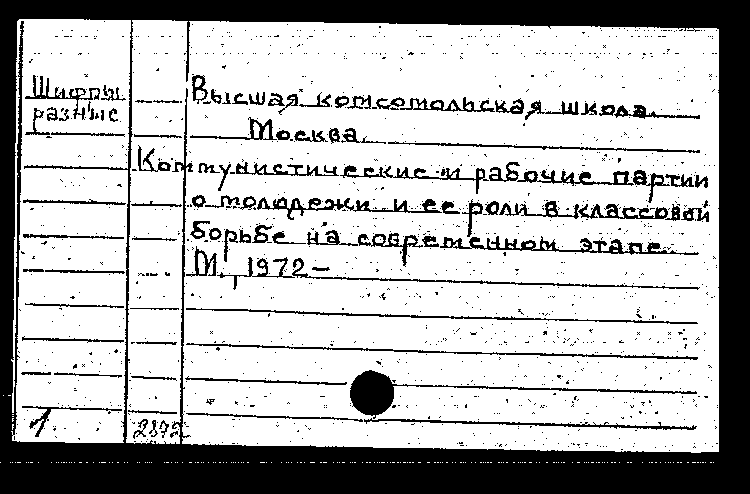 Шифры
разные
Высшая комсомольская школа.
Москва.
Коммунистические и рабочие партии
о молодежи и ее роли в классовой
борьбе на современном этапе.
М., 1972 –
1